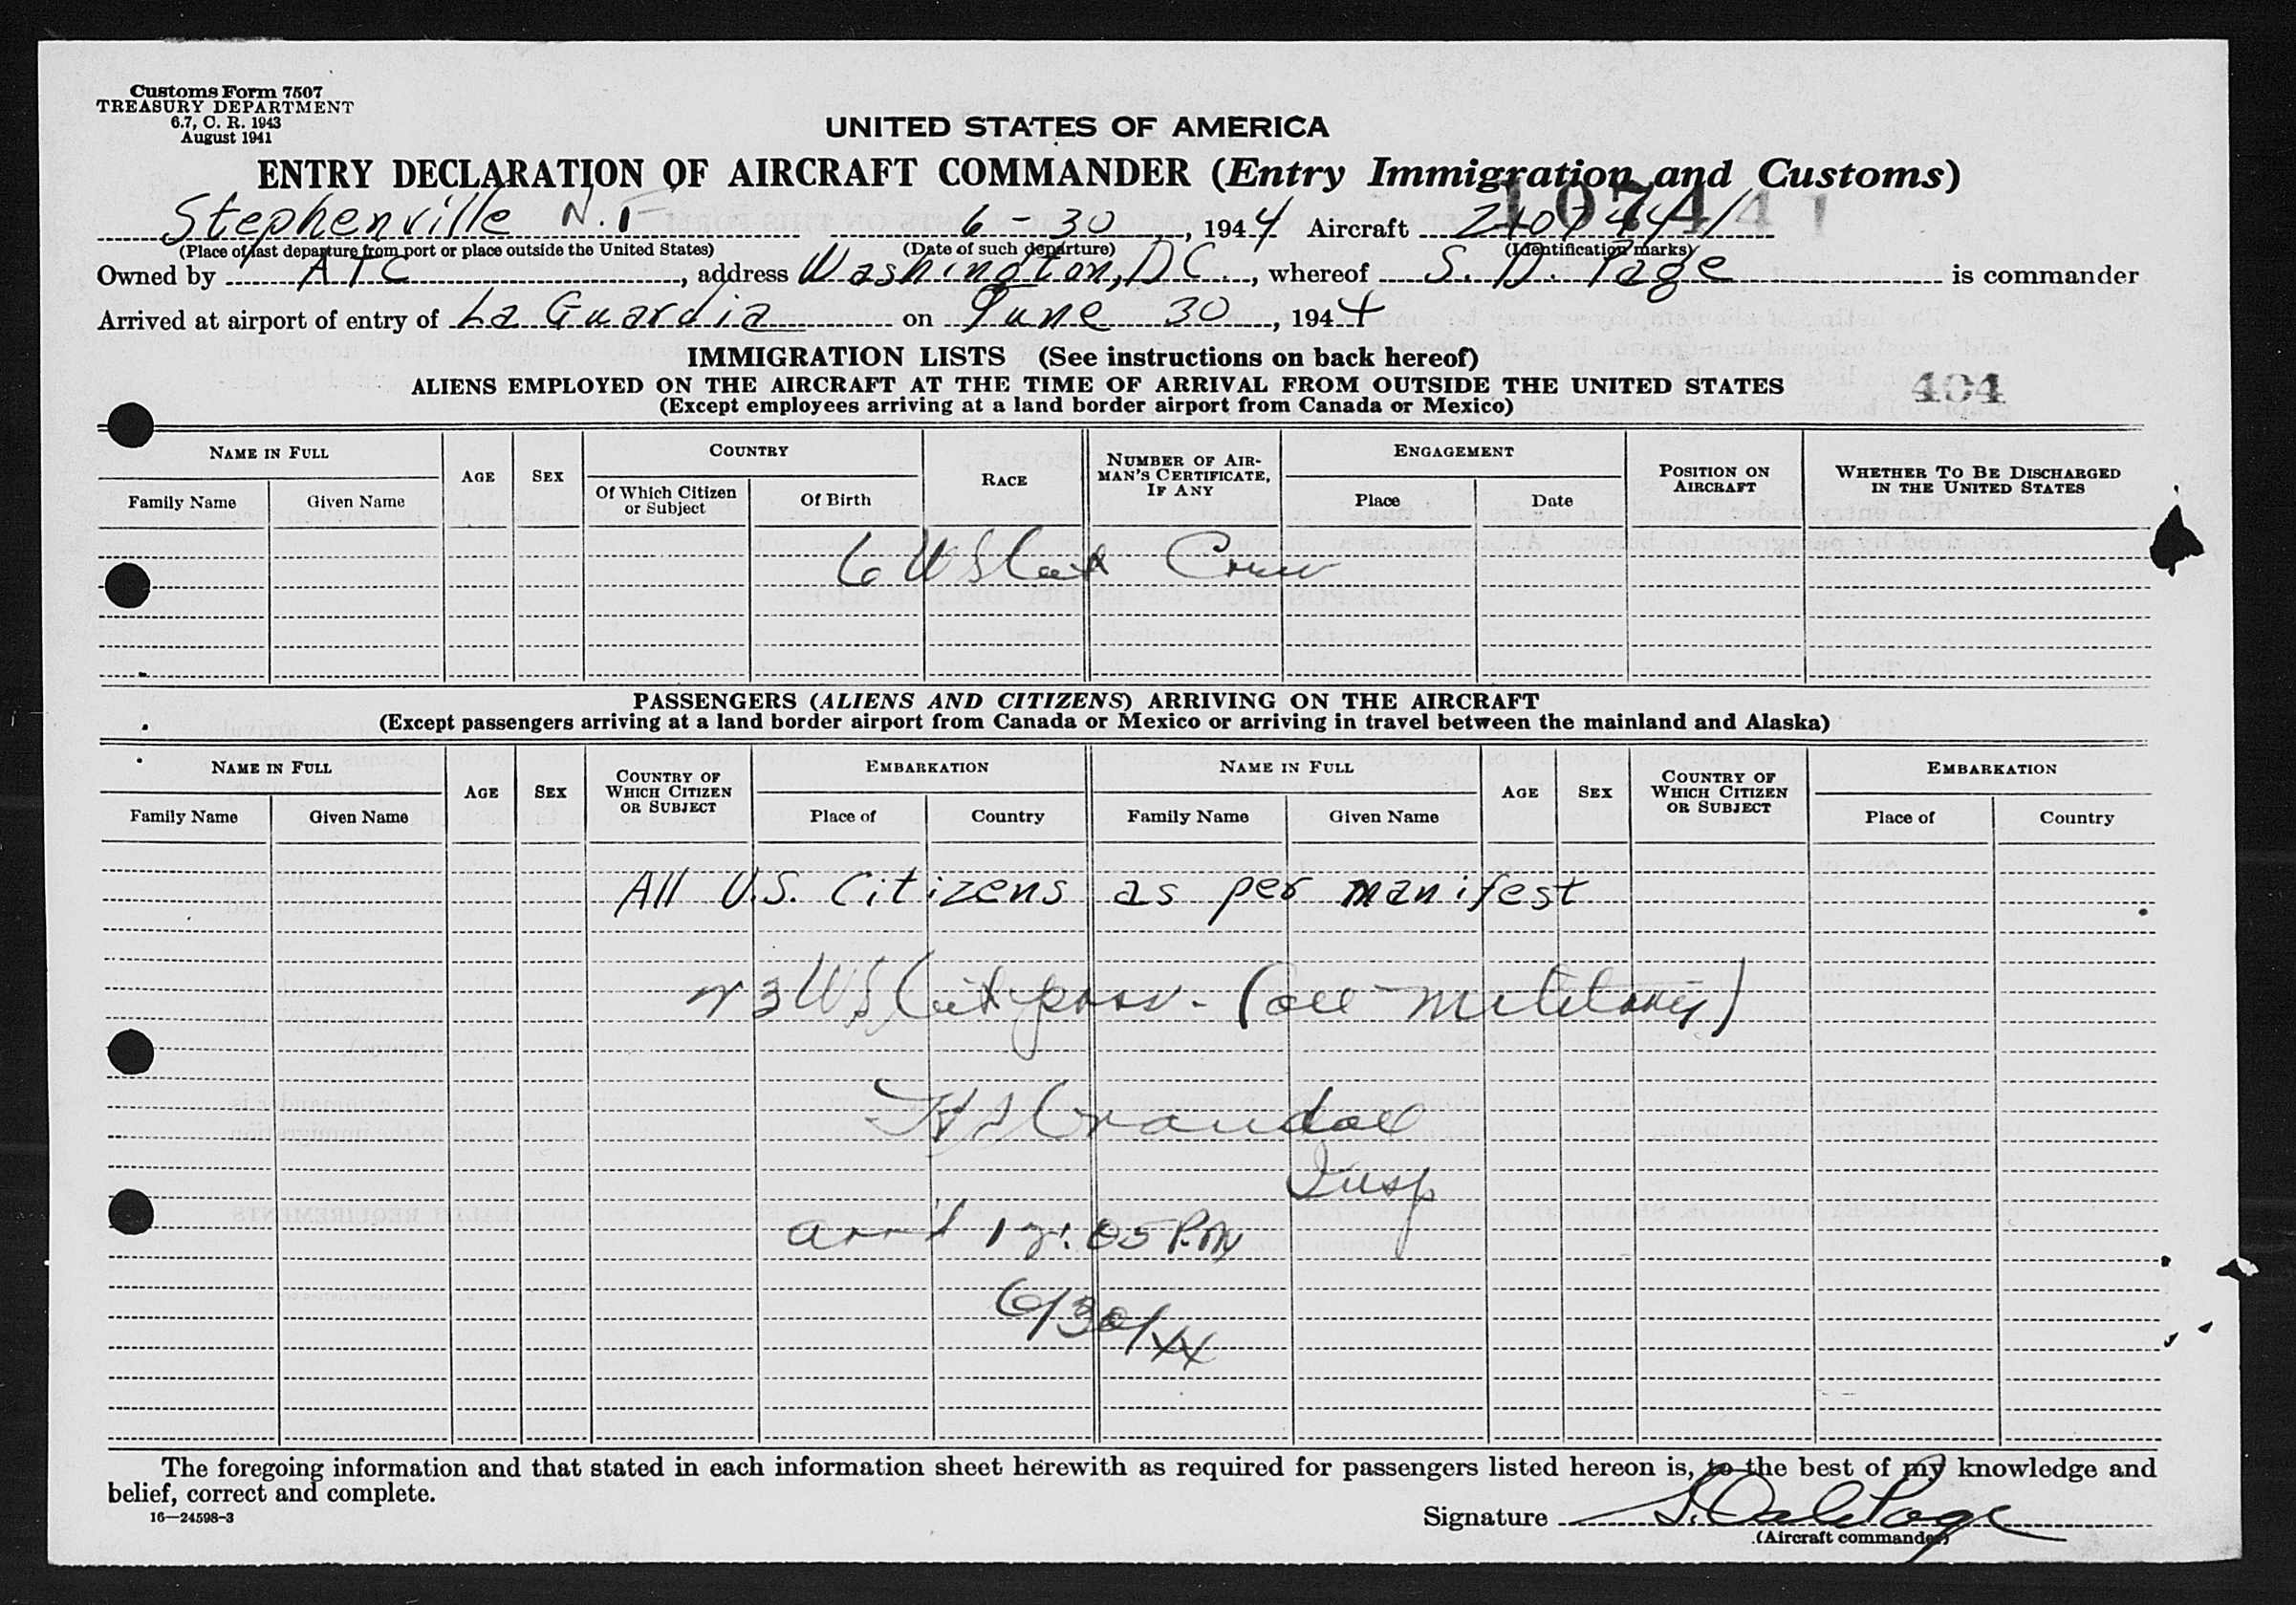 Customs Form 7507
TREASURY DEPARTMENT
6.7, C. R. 1943
August 1941
UNITED STATES OF AMERICA
ENTRY DECLARATION OF AIRCRAFT COMMANDER (Entry Immigration and Customs)
Stephenville N.F 6-30, 1944 Aircraft 2107441
(Place of last departure from port or place outside the United States) (Date of such departure) (Identification marks)
Owned by ATC, address Washington, D.C., whereof S. D. Page is commander
Arrived at airport of entry of La Guardia on June 30, 1944
IMMIGRATION LISTS (See instructions on back hereof)
ALIENS EMPLOYED ON THE AIRCRAFT AT THE TIME OF ARRIVAL FROM OUTSIDE THE UNITED STATES 404
(Except employees arriving at a land border airport from Canada or Mexico)
NAME IN FULL AGE SEX COUNTRY RACE NUMBER OF AIRMAN'S CERTIFICATE, IF ANY ENGAGEMENT POSITION ON AIRCRAFT WHETHER TO BE DISCHARGED IN THE UNITED STATES
Family Name Given Name Of Which Citizen or Subject Of Birth Place Date
6 US Cit Crew
PASSENGERS (ALIENS AND CITIZENS) ARRIVING ON THE AIRCRAFT
(Except passengers arriving at a land border airport from Canada or Mexico or arriving in travel between the mainland and Alaska)
NAME IN FULL AGE SEX COUNTRY OF WHICH CITIZEN OR SUBJECT EMBARKATION NAME IN FULL AGE SEX COUNTRY OF WHICH CITIZEN OR SUBJECT EMBARKATION
Family Name Given Name Place of Country Family Name Given Name Place of Country
All U.S. Citizens as per manifest
23 US Cit pass- (all military)
Crandall
Insp
arr'd 12:05 P.M
6/30/44
The foregoing information and that stated in each information sheet herewith as required for passengers listed hereon is, to the best of my knowledge and
belief, correct and complete.
16—24598-3
Signature S. Dale Page
(Aircraft commander)